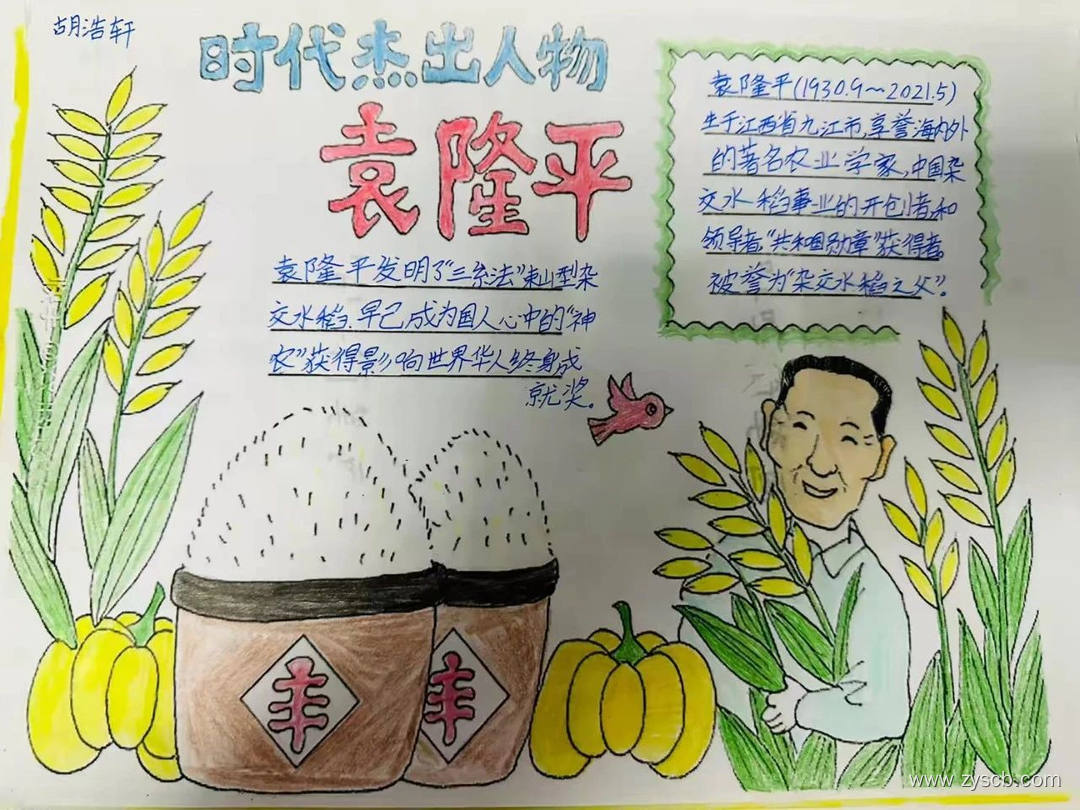 胡浩轩
时代杰出人物
袁隆平
袁隆平(1930.9~2021.5)
生于江西省九江市,享誉海内外
的著名农业学家,中国杂
交水稻事业的开创者和
领导者,“共和国勋章”获得者。
被誉为“杂交水稻之父”。
袁隆平发明了“三系法”籼型杂
交水稻、早已成为国人心中的“神
农”获得影响世界华人终身成
就奖。
丰
丰
www.zyscb.com